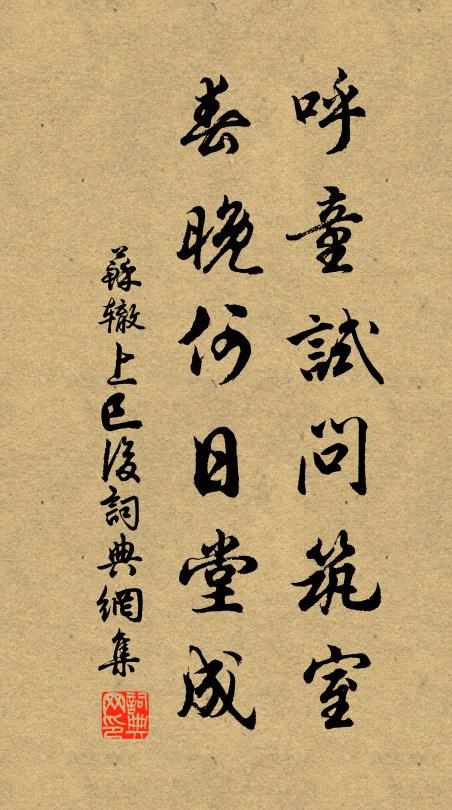 呼童試問筑室
春晚何日堂成
蘇辙上巳後詞典網集
詞典網印